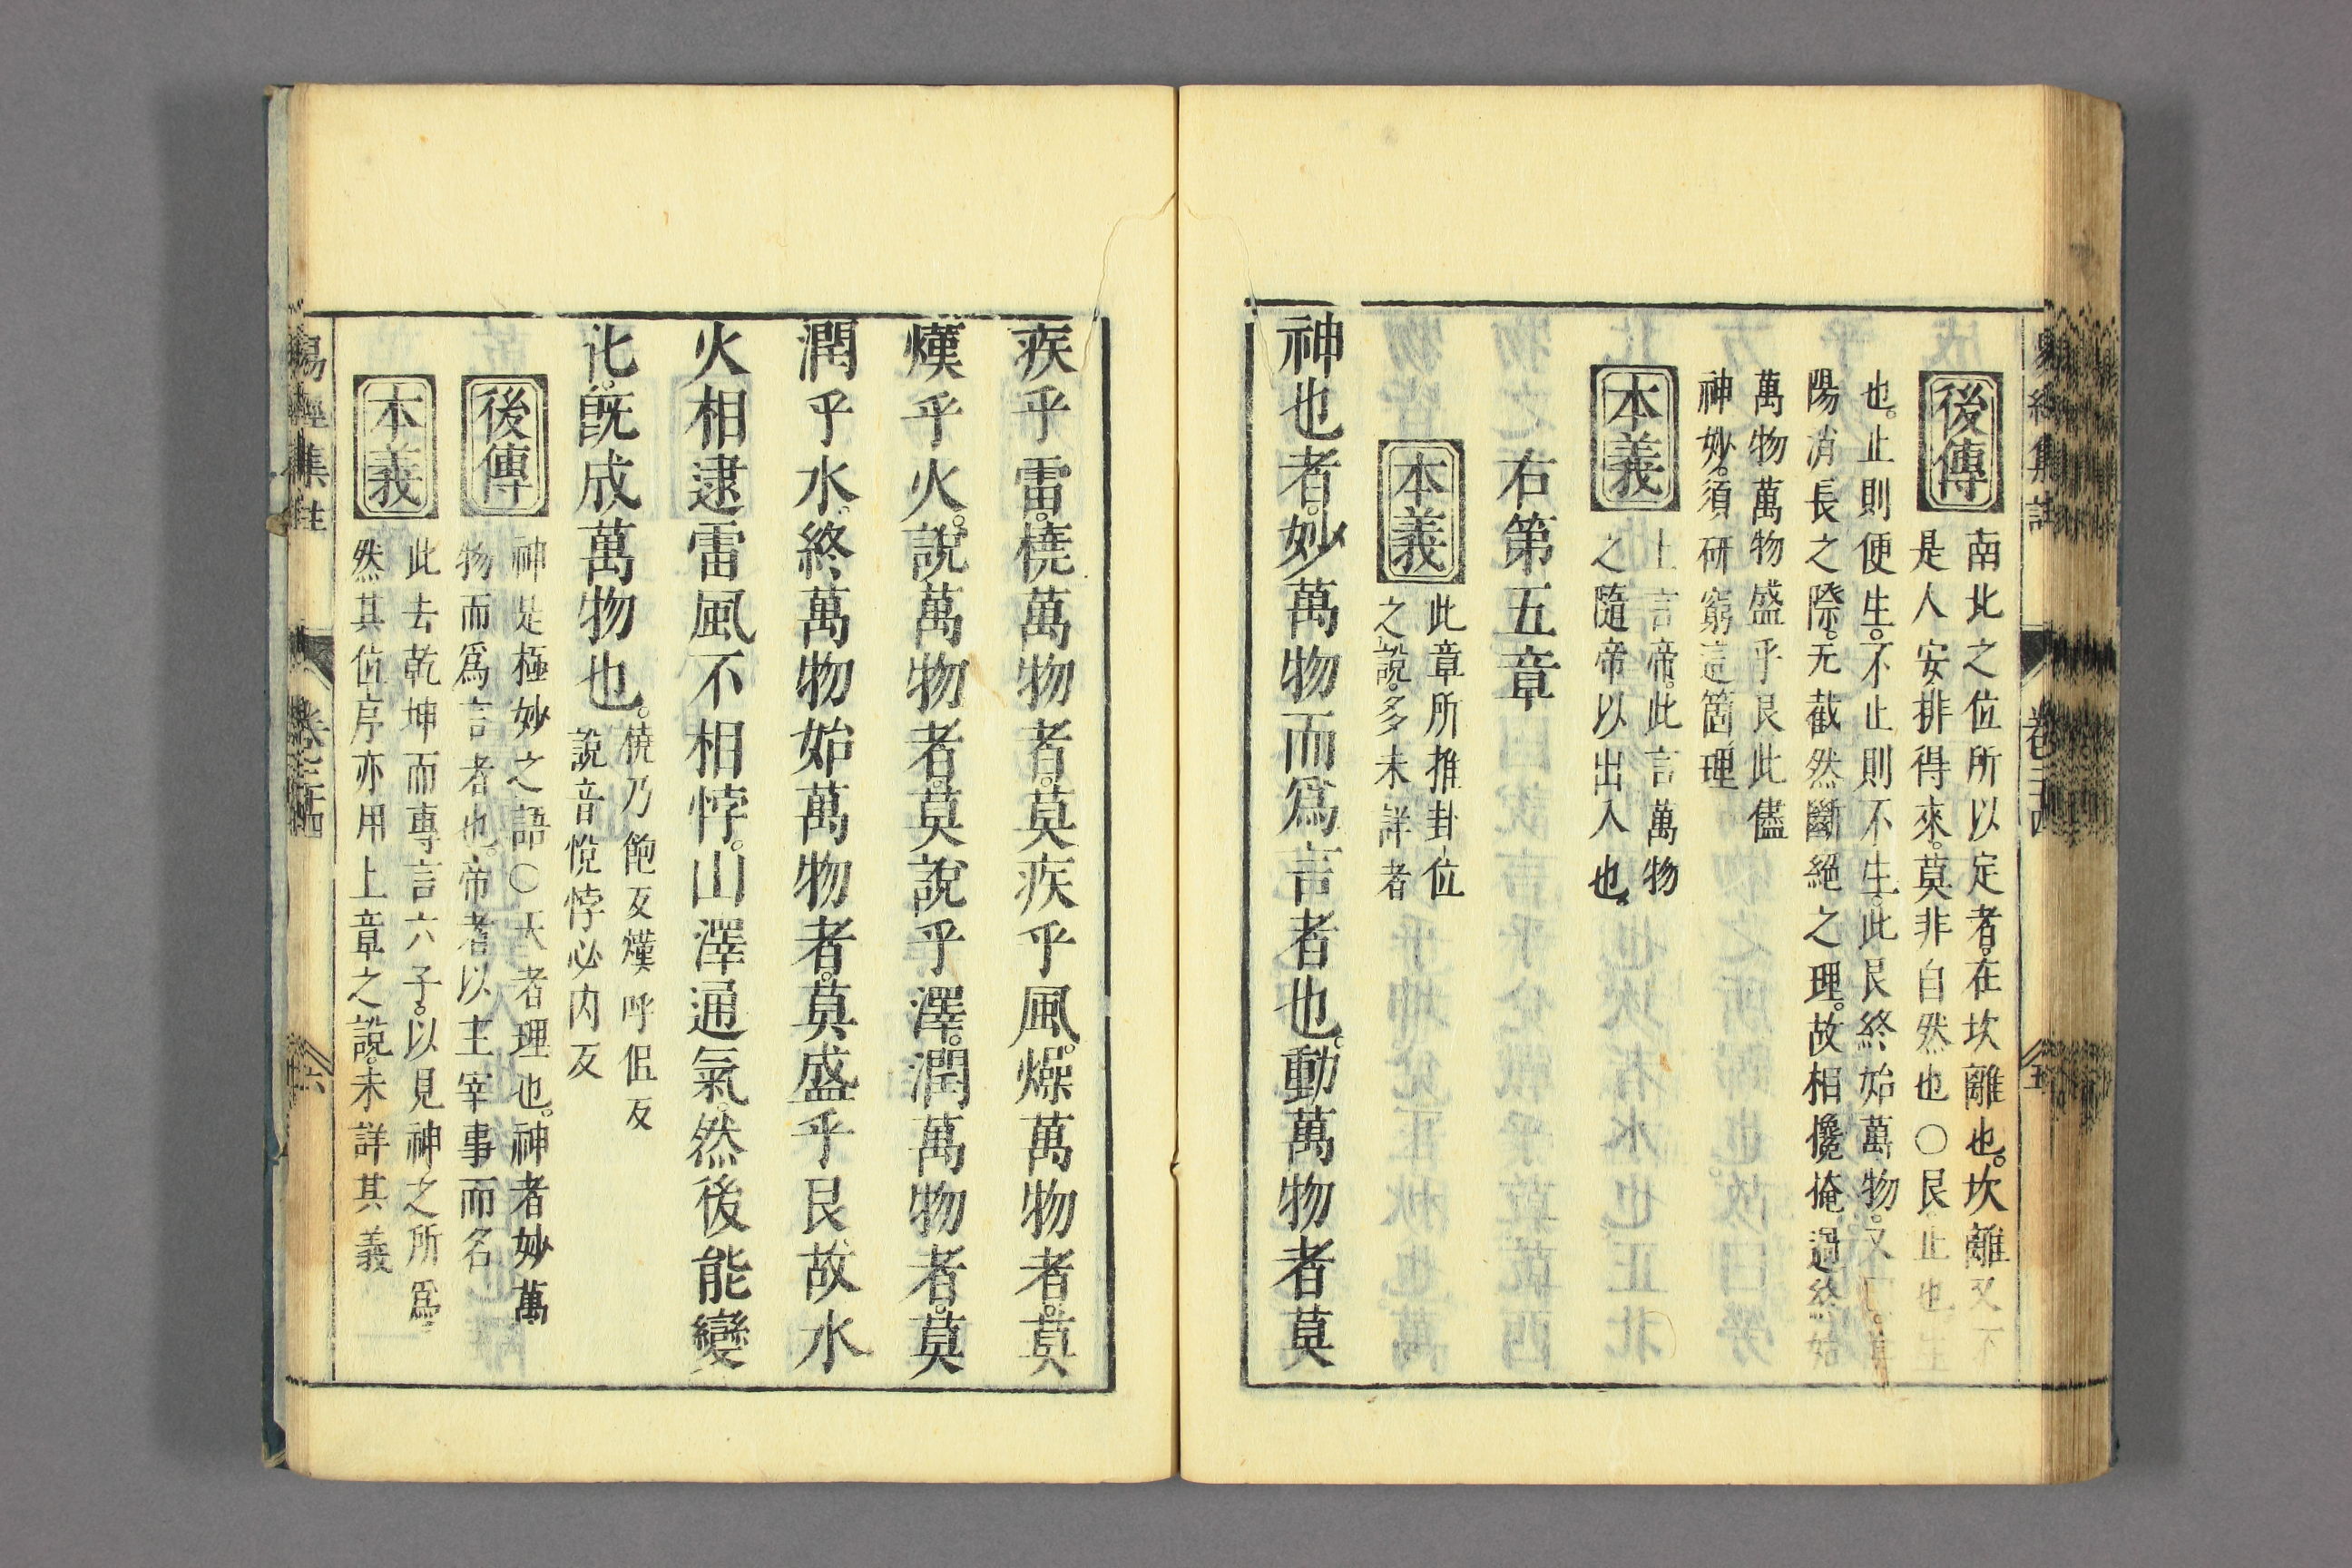 易經集註 卷二十四 五
後傳
南北之位所以定者。在坎離也。坎離又不
是人安排得來。莫非自然也○艮止也生
也。止則便生。不止則不生。此艮終始萬物。又
陽消長之際。无截然斷絕之理。故相攙掩過終始
萬物萬物盛乎艮此儘
神妙。須研窮這箇理
本義
上言帝。此言萬物
之隨帝以出入也
右第五章
本義
此章所推卦位
之說。多未詳者
神也者。妙萬物而爲言者也。動萬物者莫
疾乎雷。橈萬物者。莫疾乎風。燥萬物者。莫
熯乎火。說萬物者。莫說乎澤。潤萬物者。莫
潤乎水。終萬物始萬物者。莫盛乎艮故水
火相逮雷風不相悖。山澤通氣。然後能變
化。旣成萬物也。
橈乃飽反熯呼但反
說音悅悖必內反
後傳
神是極妙之語○天者理也。神者妙萬
物而爲言者也。帝者以主宰事而名
本義
此去乾坤而專言六子。以見神之所爲。
然其位序亦用上章之說。未詳其義
易經集註 六